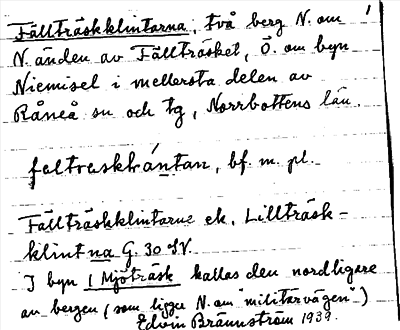 Fällträskklintarna, två berg N. om
N. änden av Fällträsket, Ö. om byn
Niemisel i mellersta delen av
Råneå sn och tg, Norrbottens län.
bf. m. pl.
Fällträskklintarne ek. Lillträsk-
klintna G. 30 SV.
I byn Mjöträsk kallas den nordligare
av bergen (som ligger N. om "militärvägen".)
Edvin Brännström 1939.